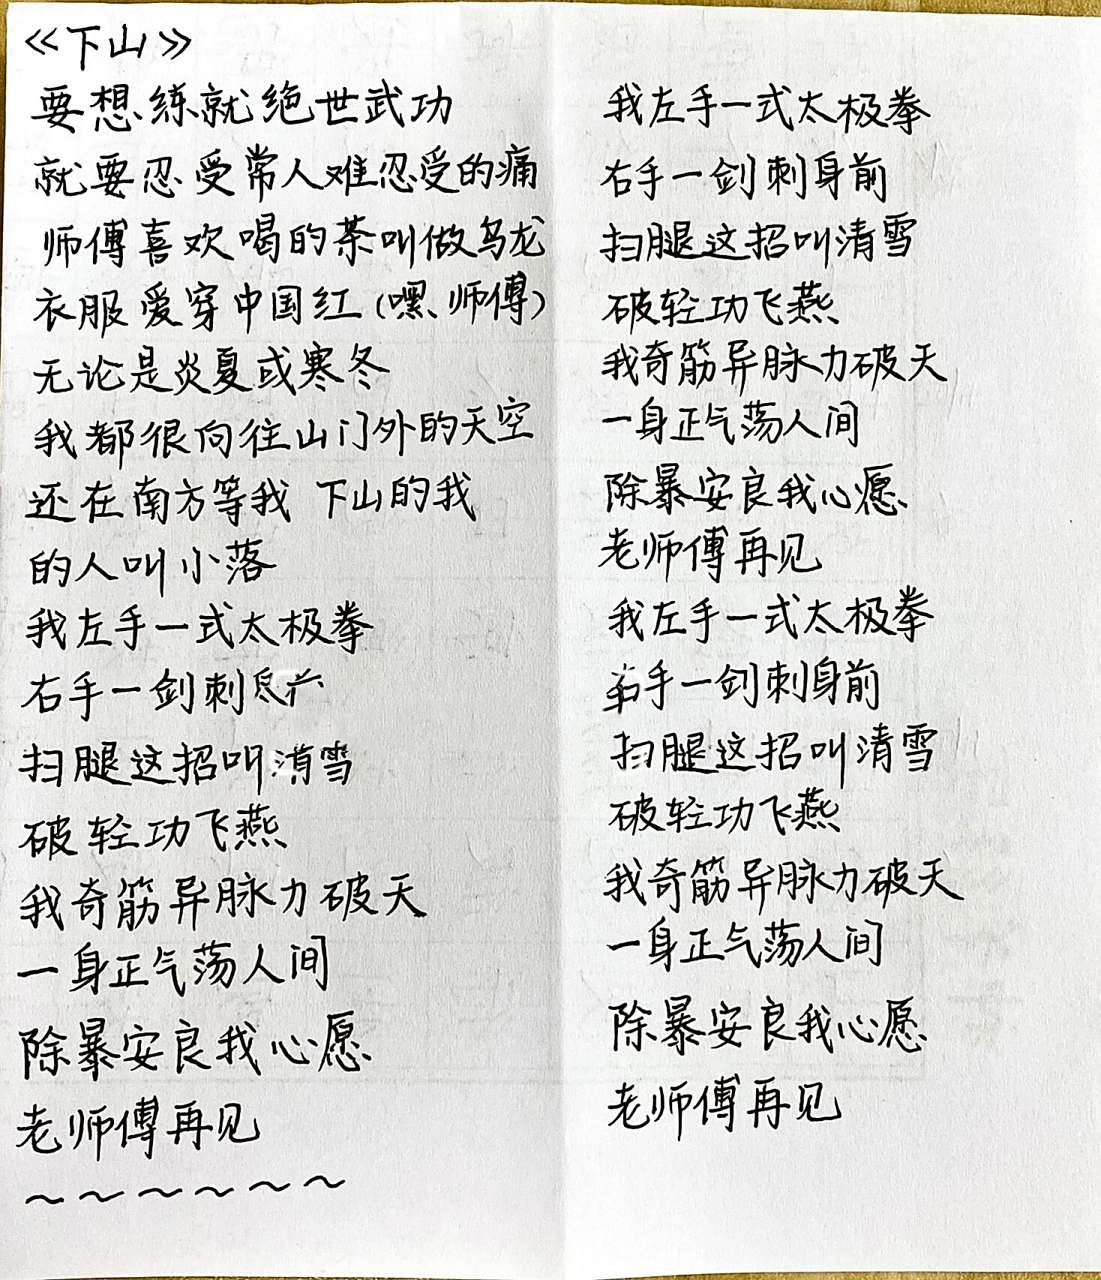 《下山》
要想练就绝世武功
就要忍受常人难忍受的痛
师傅喜欢喝的茶叫做乌龙
衣服爱穿中国红(嘿、师傅)
无论是炎夏或寒冬
我都很向往山门外的天空
还在南方等我 下山的我
的人叫小落
我左手一式太极拳
右手一剑刺
扫腿这招叫清雪
破轻功飞燕
我奇筋异脉力破天
一身正气荡人间
除暴安良我心愿
老师傅再见
~ ~ ~ ~ ~ ~
我左手一式太极拳
右手一剑刺身前
扫腿这招叫清雪
破轻功飞燕
我奇筋异脉力破天
一身正气荡人间
除暴安良我心愿
老师傅再见
我左手一式太极拳
右手一剑刺身前
扫腿这招叫清雪
破轻功飞燕
我奇筋异脉力破天
一身正气荡人间
除暴安良我心愿
老师傅再见